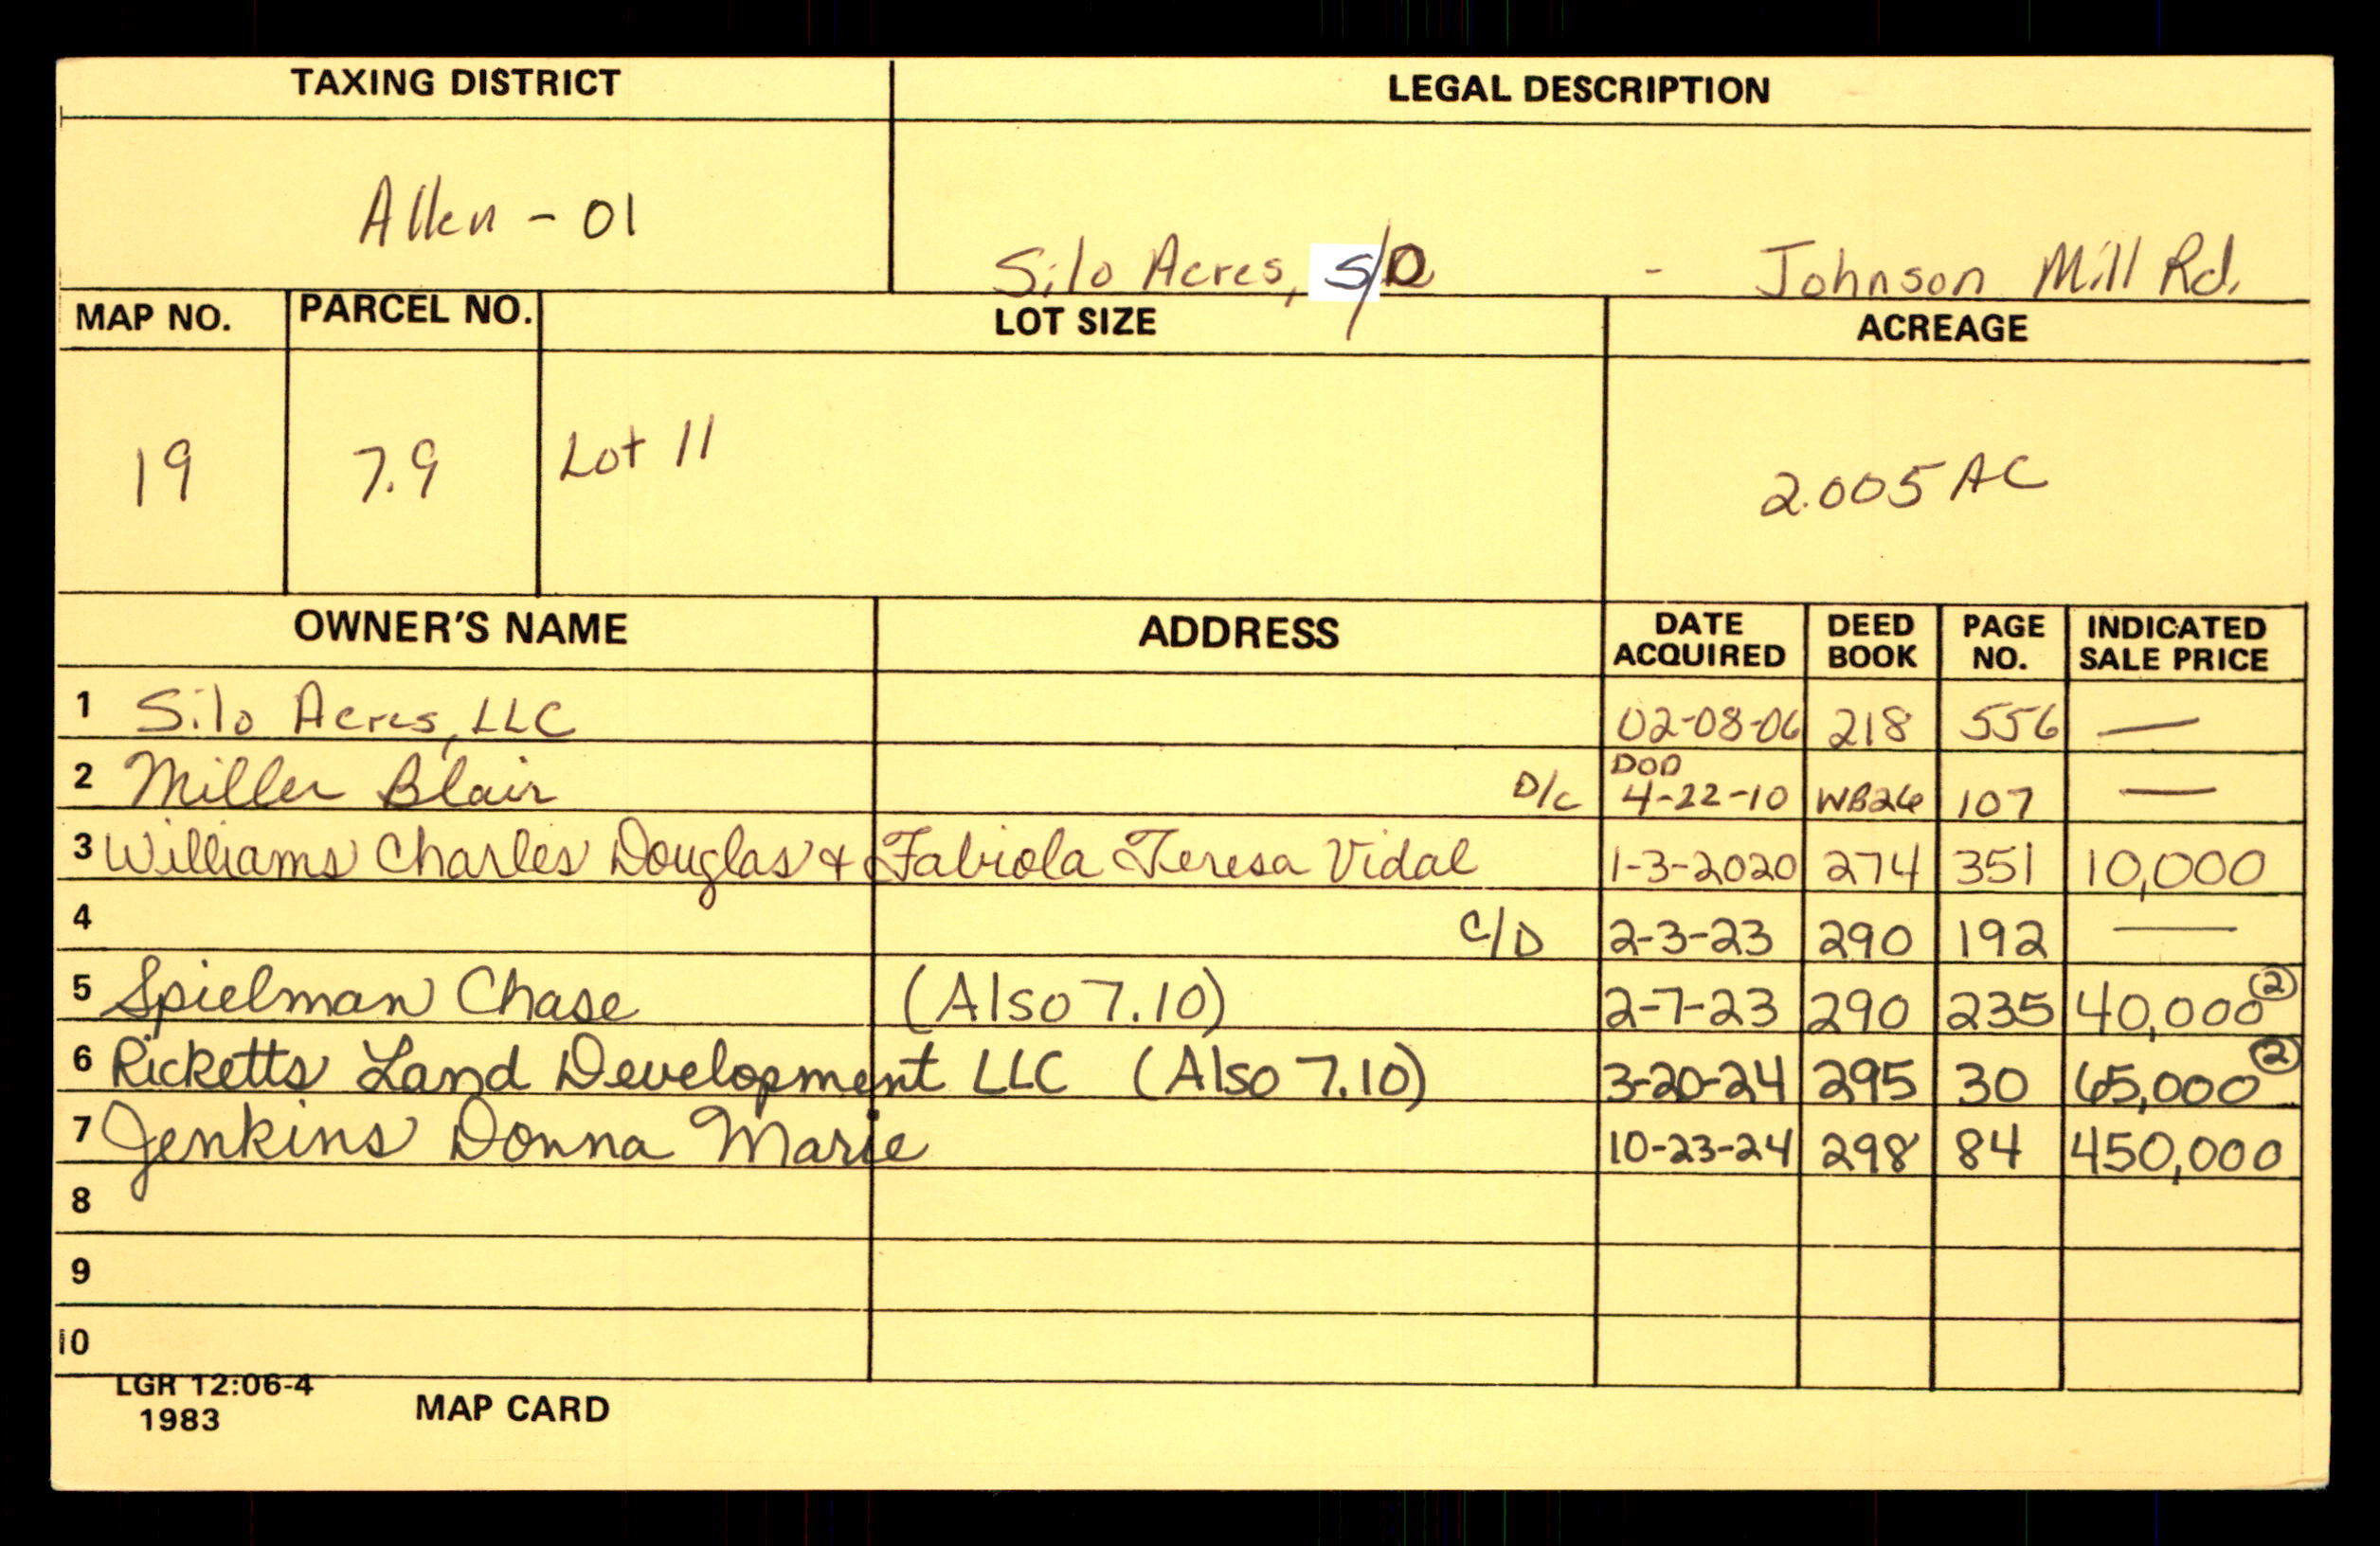 TAXING DISTRICT LEGAL DESCRIPTION
Allen - 01
Silo Acres, S/D - Johnson Mill Rd.
MAP NO. PARCEL NO. LOT SIZE ACREAGE
19 7.9 Lot 11 2.005 AC
OWNER'S NAME ADDRESS DATE ACQUIRED DEED BOOK PAGE NO. INDICATED SALE PRICE
1 Silo Acres, LLC 02-08-06 218 556 —
2 Miller Blair D/C DOD 4-22-10 WB26 107 —
3 Williams Charles Douglas & Fabiola Teresa Vidal 1-3-2020 274 351 10,000
4 C/D 2-3-23 290 192 —
5 Spielman Chase (Also 7.10) 2-7-23 290 235 40,000 (2)
6 Ricketts Land Development LLC (Also 7.10) 3-20-24 295 30 65,000 (2)
7 Jenkins Donna Marie 10-23-24 298 84 450,000
8
9
10
LGR 12:06-4
1983 MAP CARD